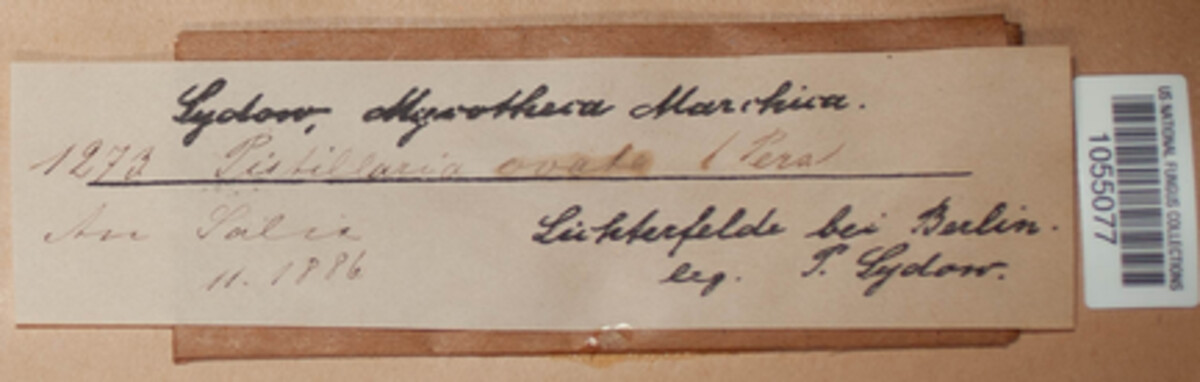 Sydow, Mycotheca Marchica.
1273 Pistillaria ovata (Pers)
An Salix
11. 1886
Lichterfelde bei Berlin.
leg. P. Sydow.
US NATIONAL FUNGUS COLLECTIONS
1055077